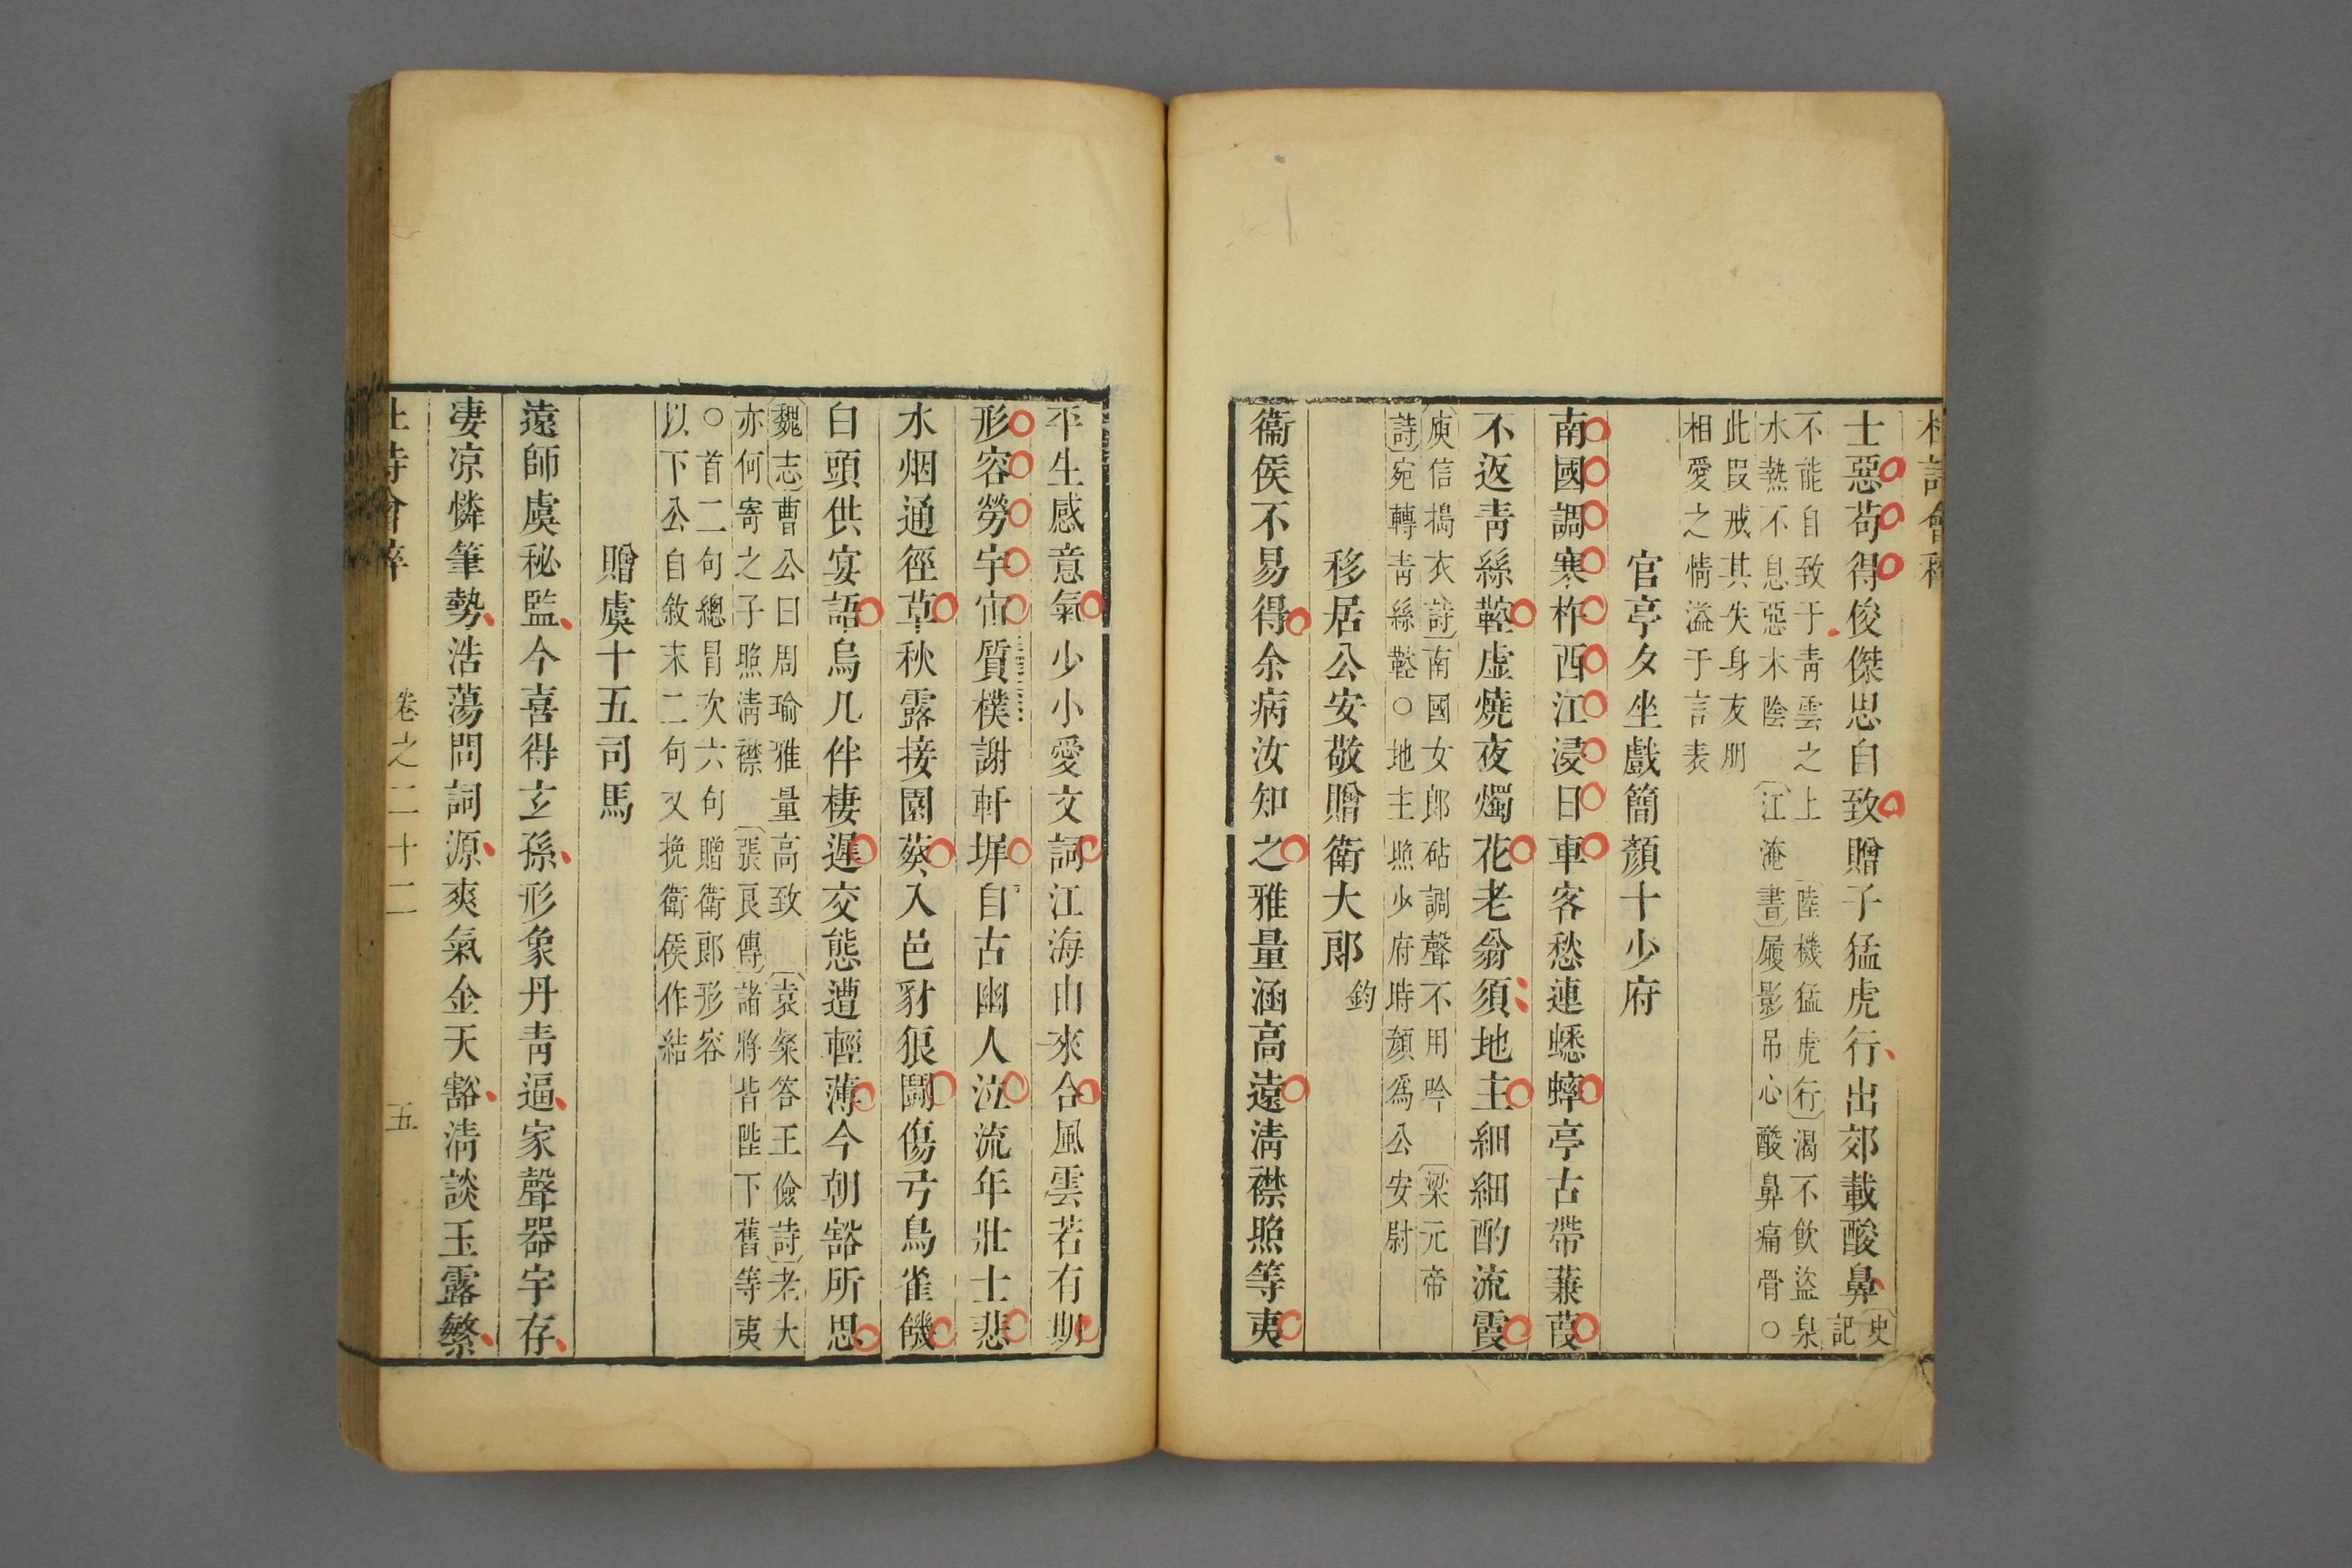 杜詩會稡
士惡苟得俊傑思自致贈子猛虎行出郊載酸鼻史記
不能自致于青雲之上　陸機猛虎行渴不飲盜泉
水熱不息惡木陰　江淹書履影吊心酸鼻痛骨○
此叚戒其失身友朋
相愛之情溢于言表
官亭夕坐戲簡顏十少府
南國調寒杵西江浸日車客愁連蟋蟀亭古帶蒹葭
不返青絲鞚虛燒夜燭花老翁須地主細細酌流霞
庾信搗衣詩南國女郎砧調聲不用吟　梁元帝
詩宛轉青絲鞚○地主照少府時顏爲公安尉
移居公安敬贈衛大郎鈞
衞侯不易得余病汝知之雅量涵高遠清襟照等夷
平生感意氣少小愛文詞江海由來合風雲若有期
形容勞宇宙質樸謝軒墀自古幽人泣流年壯士悲
水烟通徑草秋露接園葵入邑豺狼鬭傷弓鳥雀饑
白頭供宴語烏几伴棲遲交態遭輕薄今朝豁所思
魏志曹公曰周瑜雅量高致　袁粲答王儉詩老大
亦何寄之子照清襟　張良傳諸將皆陛下舊等夷
○首二句總冒次六句贈衛郎形容
以下公自敘末二句又挽衛侯作結
贈虞十五司馬
遠師虞秘監今喜得玄孫形象丹青逼家聲器宇存
凄凉憐筆勢浩蕩問詞源爽氣金天豁清談玉露繁
杜詩會稡　卷之二十二　五